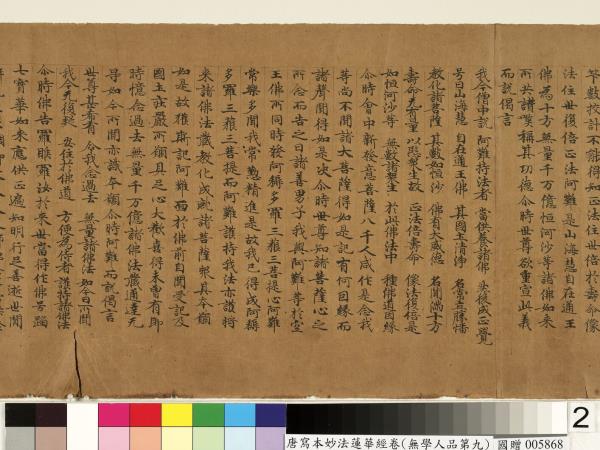 筭數校計不能得知正法住世倍於壽命像
法住世復倍正法阿難是山海慧自在通王
佛為十方無量千万億恒河沙等諸佛如來
所共讚嘆稱其功德尒時世尊欲重宣此義
而說偈言
我今僧中說 阿難持法者 當供養諸佛 然後成正覺
号曰山海慧 自在通王佛 其國土清淨 名常立勝幡
教化諸菩薩 其數如恒沙 佛有大威德 名聞滿十方
壽命无有量 以愍眾生故 正法倍壽命 像法復倍是
如恒河沙等 無數諸眾生 於此佛法中 種佛道因緣
尒時會中新發意菩薩八千人咸作是念我
等尚不聞諸大菩薩得如是記有何因緣而
諸聲聞得如是決尒時世尊知諸菩薩心之
所念而告之曰諸善男子我與阿難等於空
王佛所同時發阿耨多羅三藐三菩提心阿難
常樂多聞我常懃精進是故我已得成阿耨
多羅三藐三菩提而阿難護持我法亦護將
來諸佛法藏教化成就諸菩薩眾其本願
如是故獲斯記阿難面於佛前自聞受記及
國土莊嚴所願具足心大歡喜得未曾有即
時憶念過去無量千万億諸佛法藏通達无
㝵如今所聞亦識本願尒時阿難而說偈言
世尊甚希有 令我念過去 無量諸佛法 如今日所聞
我今无復疑 安住於佛道 方便為侍者 護持諸佛法
尒時佛告羅睺羅汝於來世當得作佛号蹈
七寶華如來應供正遍知明行足善逝世間
2
唐寫本妙法蓮華經卷(無學人品第九)
國贈 005868